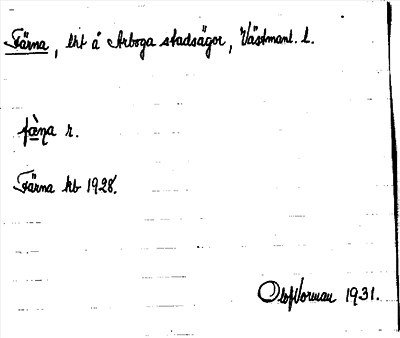 Färna, lht å Arboga stadsägor, Västmanl. l.
fæ̀ṇa r.
Färna kb 1928.
Olof Norman 1931.